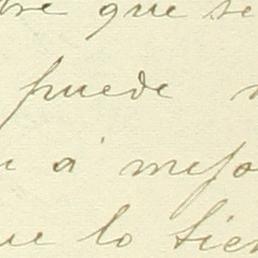 que se
puede
á mejo
que lo tien